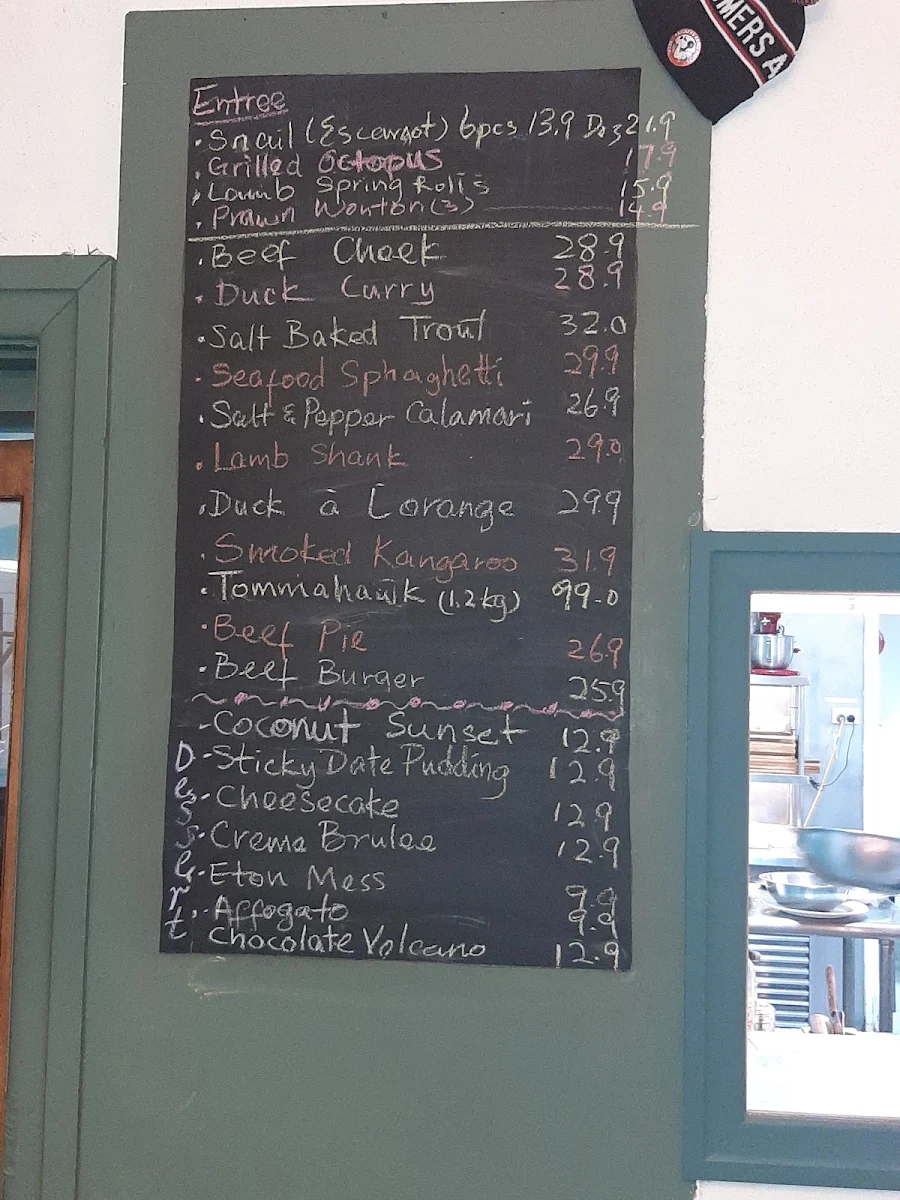 MERS A
Entree
· Snail (Escargot) 6pcs 13.9 Doz 21.9
· Grilled Octopus 17.9
· Lamb Spring Rolls 15.9
· Prawn Wonton (3) 14.9
· Beef Cheek 28.9
· Duck Curry 28.9
· Salt Baked Trout 32.0
· Seafood Sphaghetti 29.9
· Salt & Pepper Calamari 26.9
· Lamb Shank 29.0
· Duck à Lorange 29.9
· Smoked Kangaroo 31.9
· Tommahawk (1.2kg) 99.0
· Beef Pie 26.9
· Beef Burger 25.9
Dessert
- Coconut Sunset 12.9
- Sticky Date Pudding 12.9
- Cheesecake 12.9
· Creme Brulee 12.9
· Eton Mess 9.9
· Affogato 9.9
· Chocolate Volcano 12.9